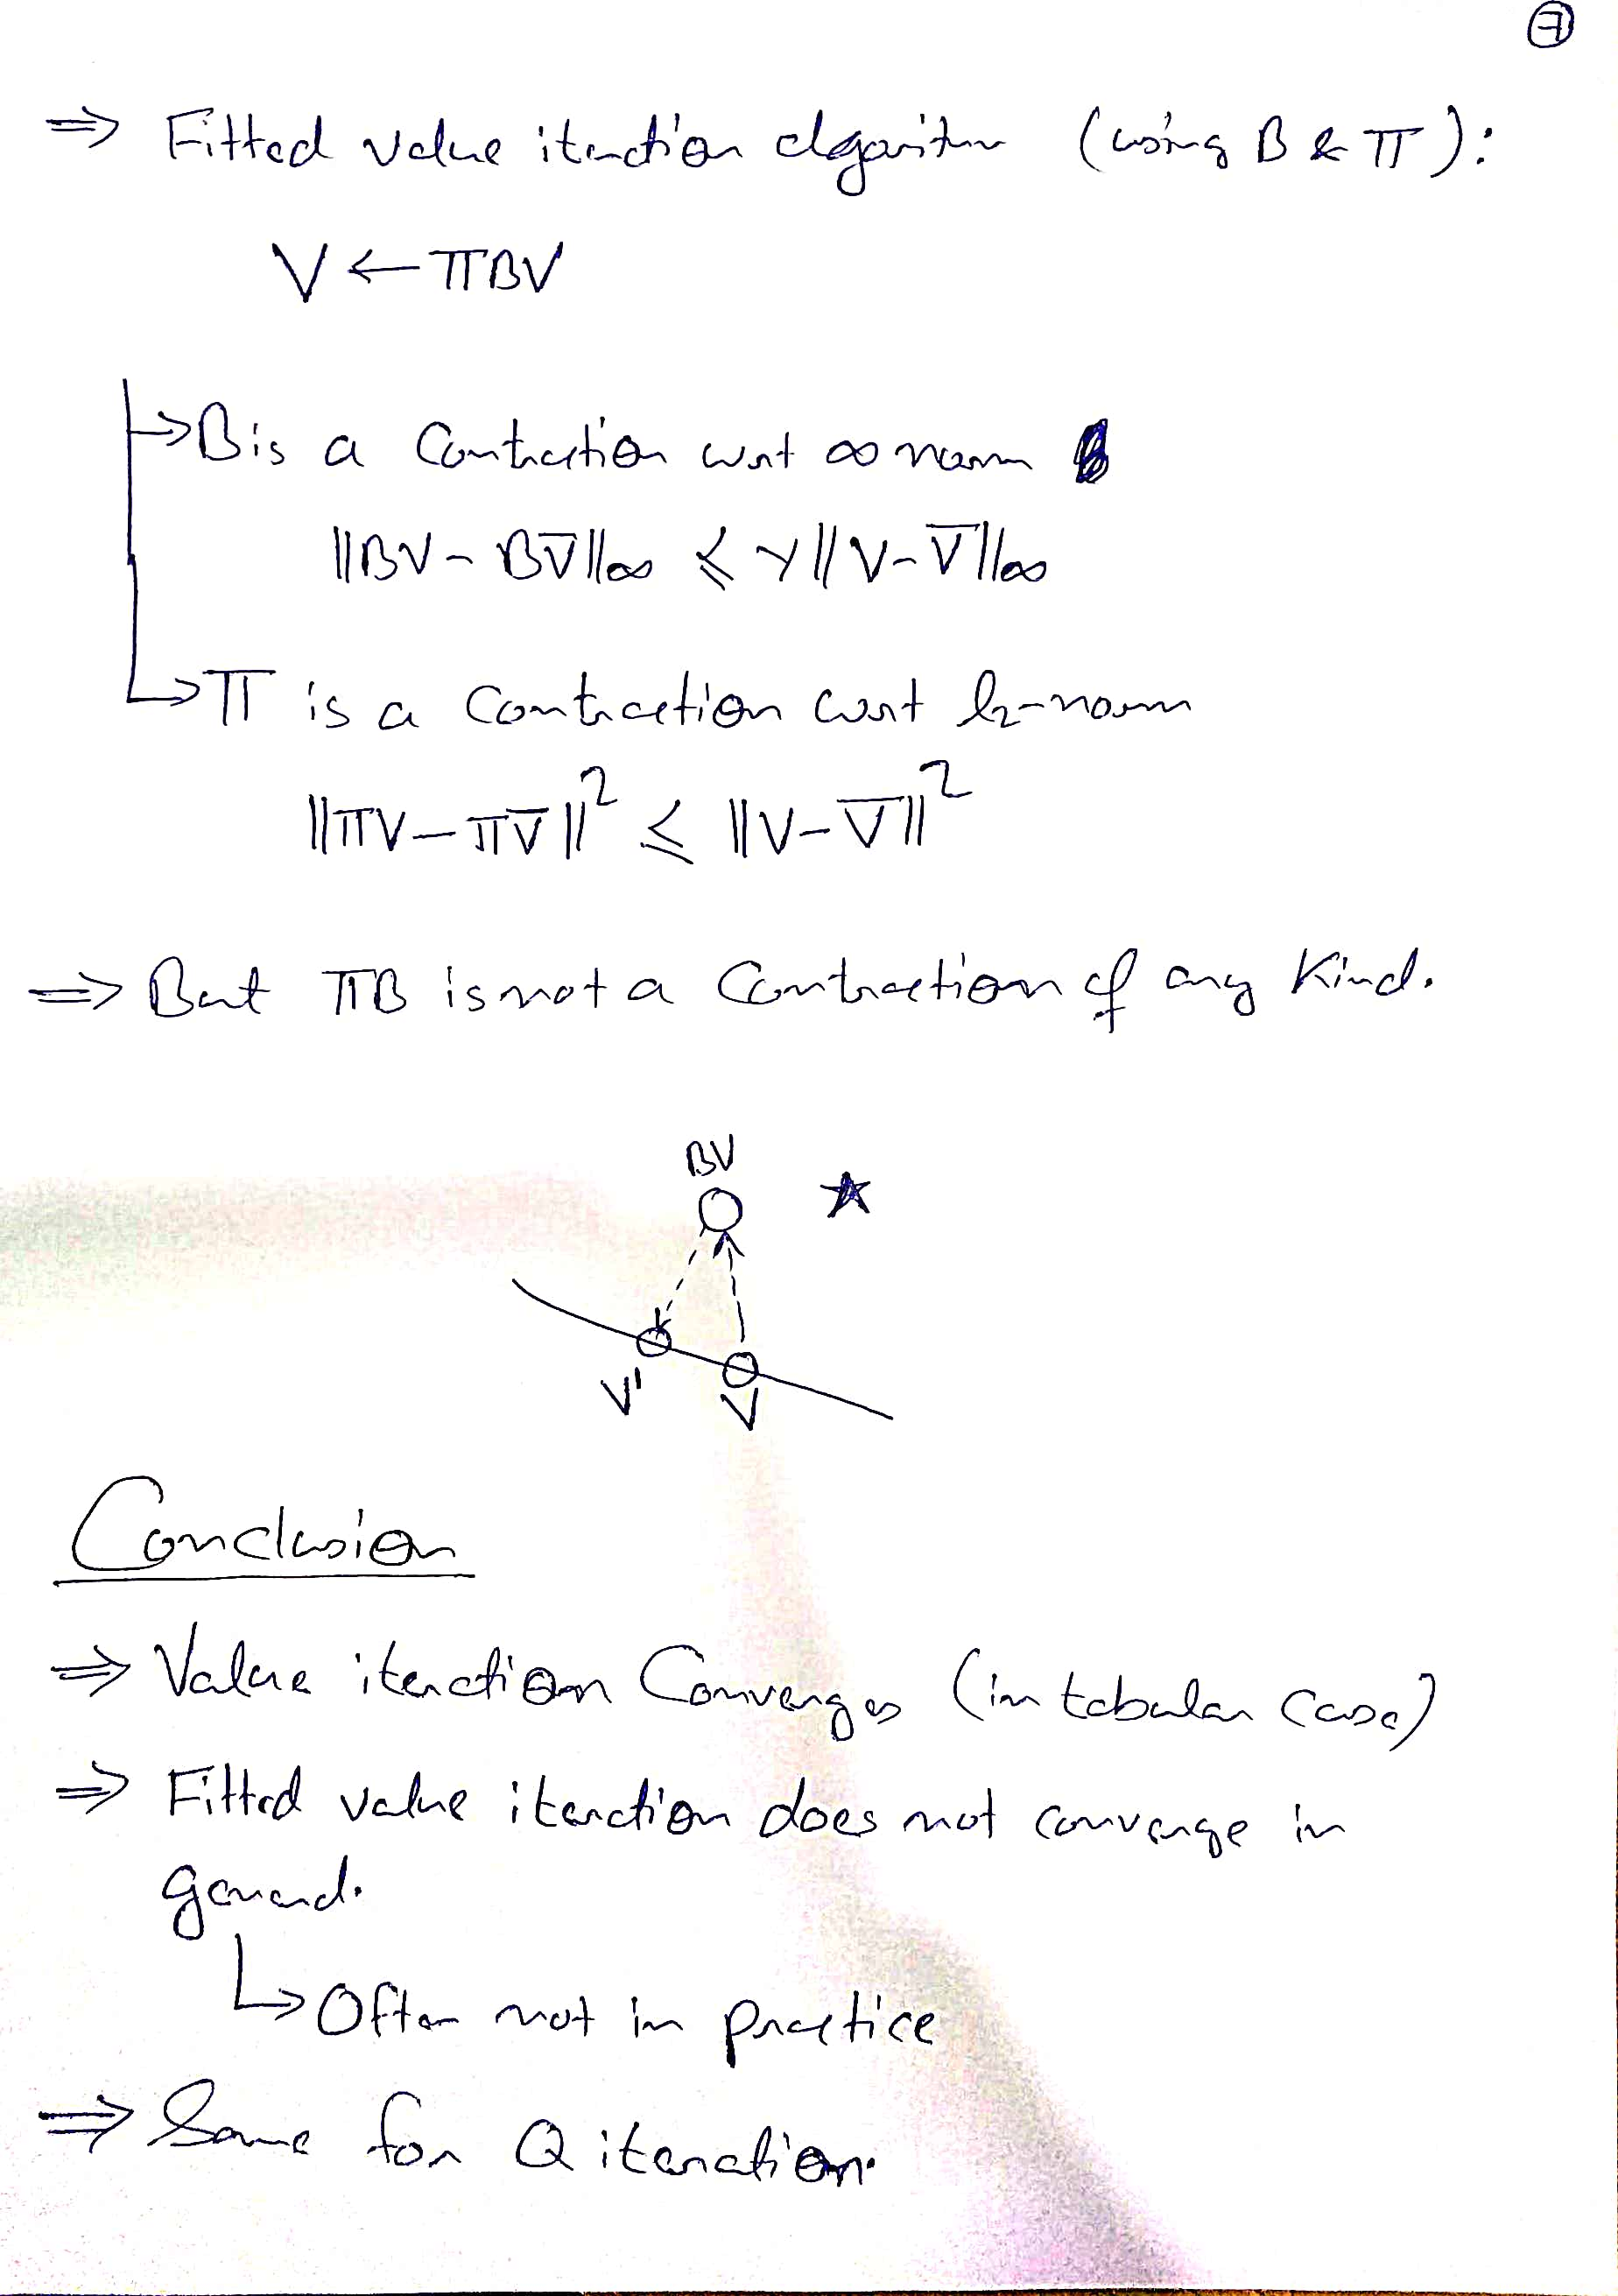 7
⇒ Fitted value iteration algorithm (using B & Π):
V ← ΠBV
→ B is a Contraction wrt ∞ norm
||BV - BV̄||∞ ≤ γ||V - V̄||∞
→ Π is a Contraction wrt l2-norm
||ΠV - ΠV̄||² ≤ ||V - V̄||²
⇒ But ΠB is not a Contraction of any Kind.
BV
V'
V
Conclusion
⇒ Value iteration Converges (in tabular case)
⇒ Fitted value iteration does not converge in
general.
→ Often not in practice
⇒ Same for Q iteration.